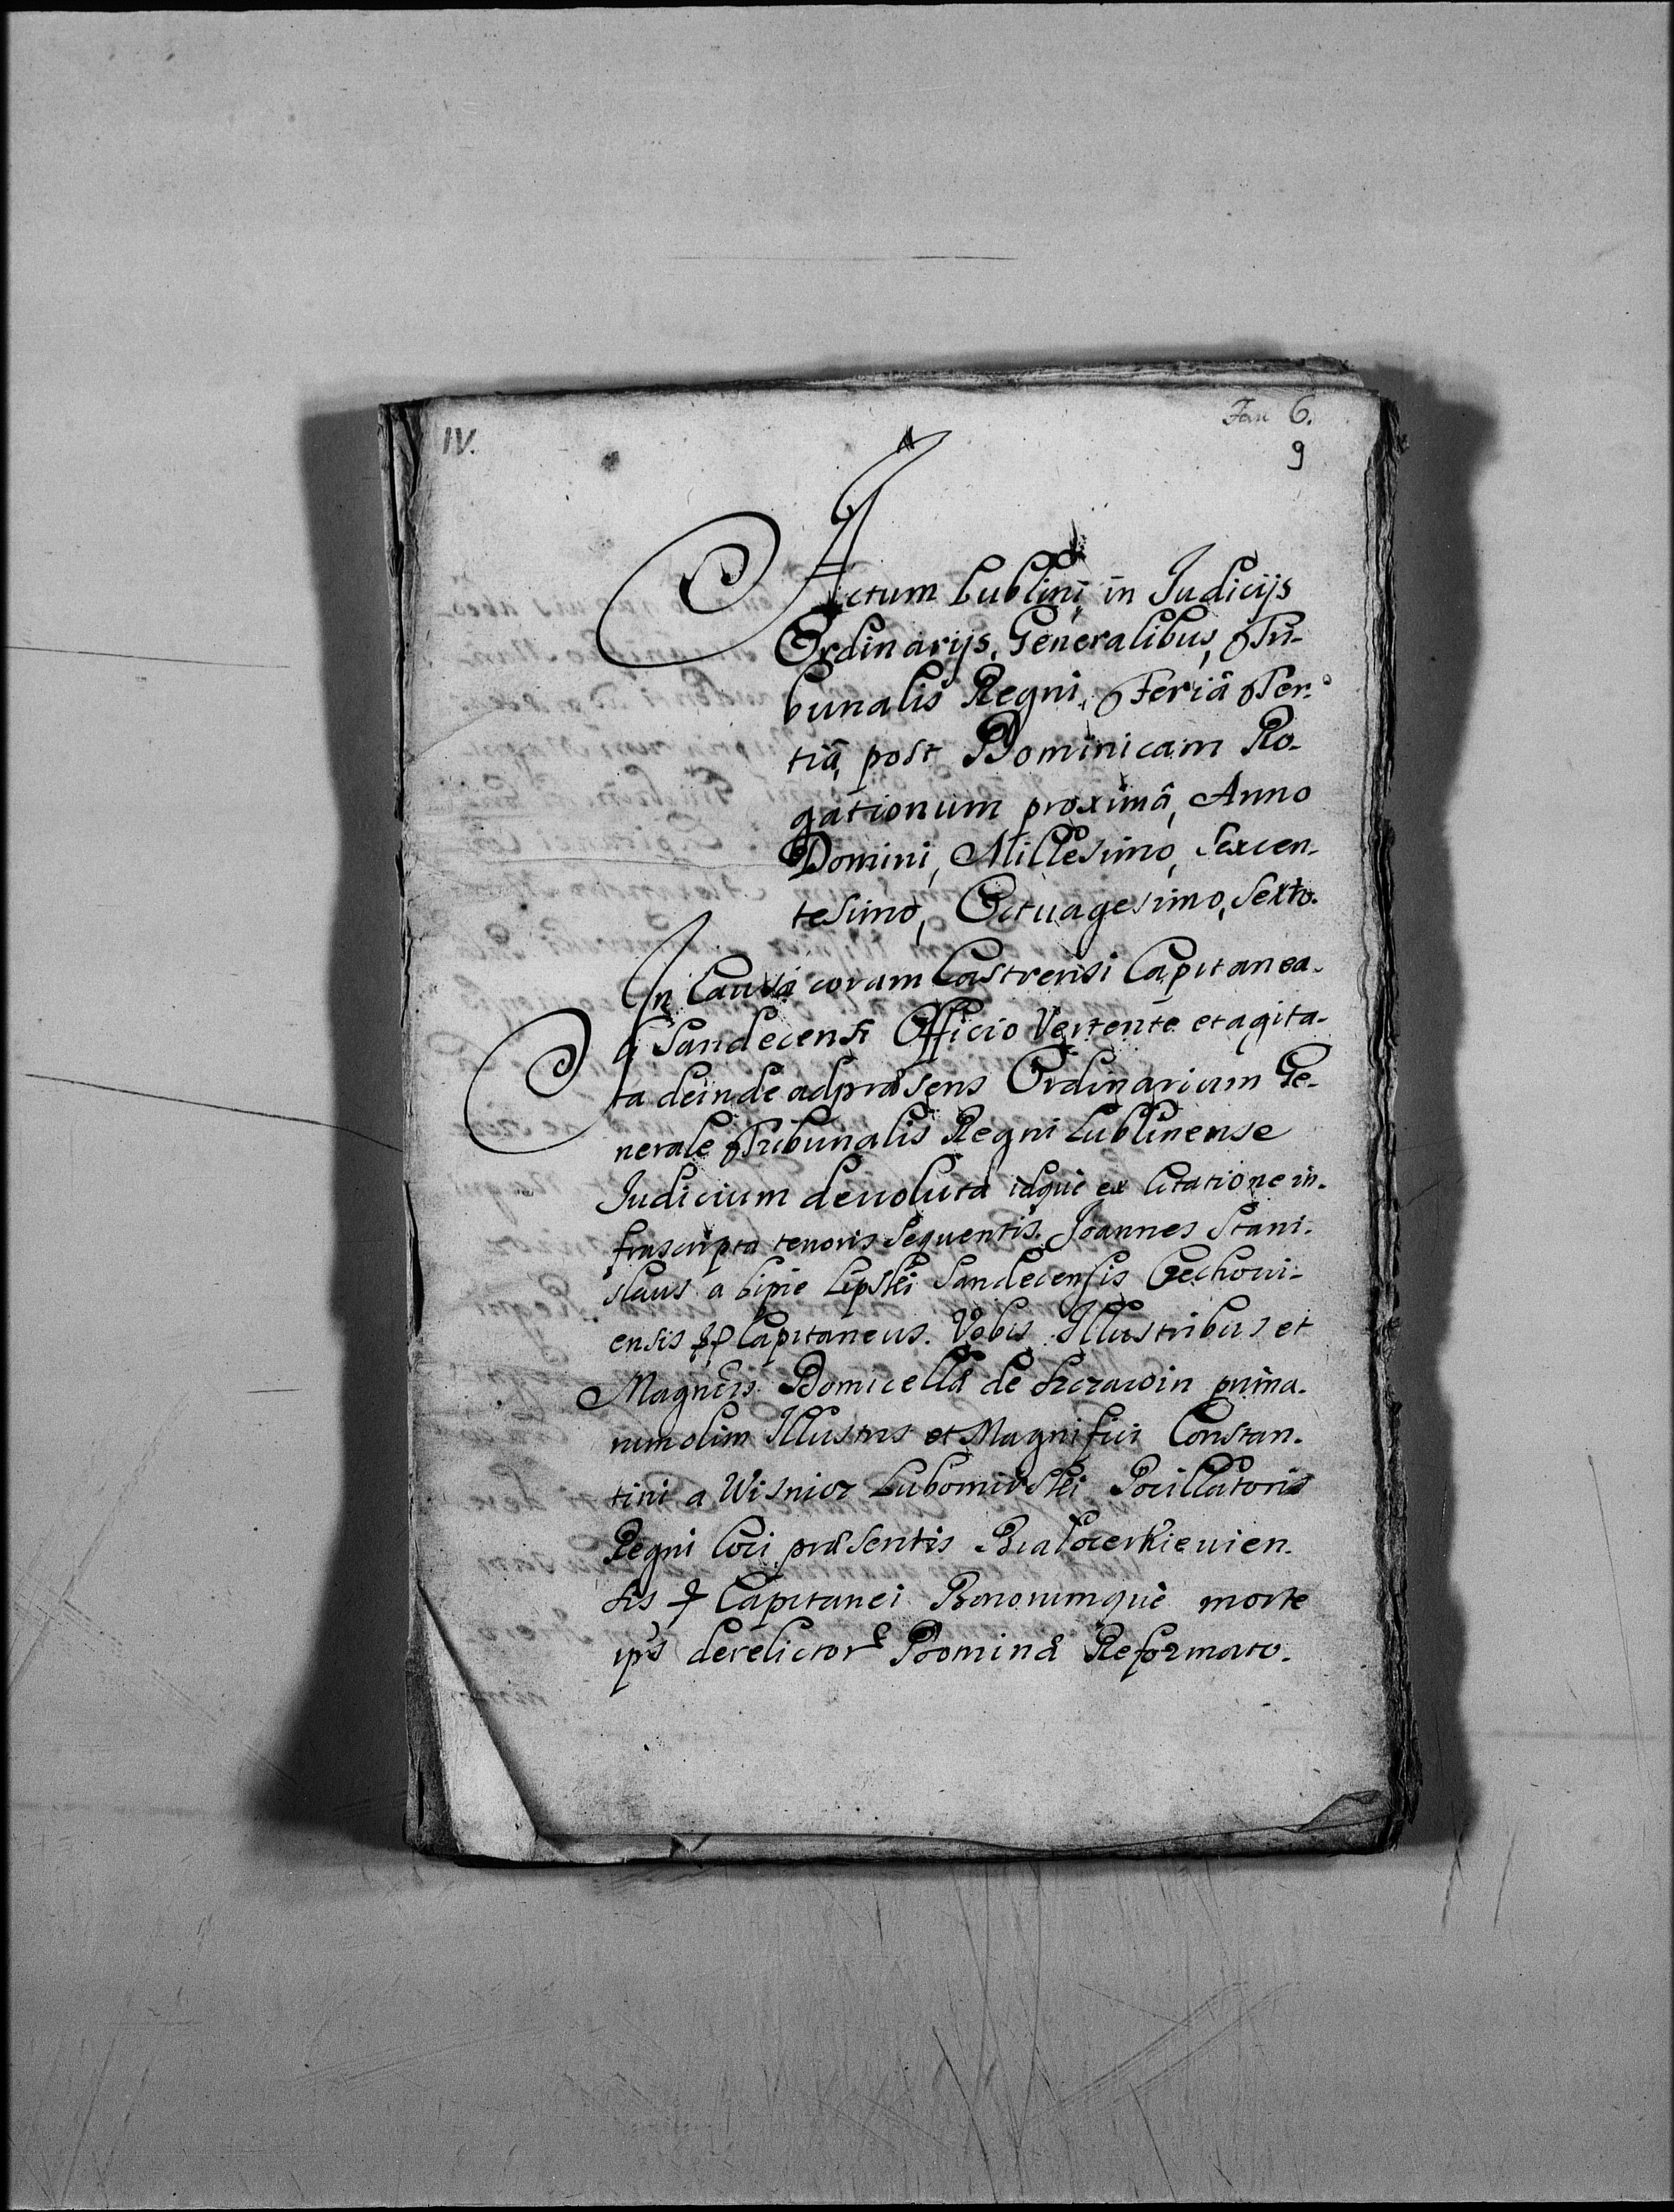 IV.
Fau 6.
9
Actum Lublini in Judicijs
Ordinarijs, Generalibus, Tri-
bunalis Regni. Feriâ Ter-
tiâ, post Dominicam Ro-
gationum proximâ, Anno
Domini, Millesimo, Sexcen-
tesimo, Octuagesimo, Sexto.
In Causa coram Castrensi Capitanea-
li Sandecensi Officio Vertente et agita-
ta deinde ad præsens Ordinarium Ge-
nerale Tribunalis Regni Lublinense
Judicium devoluta idque ex Citatione in-
frascripta tenoris sequentis. Joannes Stani-
slaus a Lipie Lipski Sandecensis Czchovi-
ensis Capitaneus. Vobis Illustribus et
Magncis Domicellæ de Sczawin prima.
num olim Illustris et Magnifici Constan-
tini a Wisnicz Lubomirski Pocillatoris
Regni Loci præsentis Białocerkievien-
sis Capitanei Bonorumque morte
ips derelictor Dominæ Reformato-